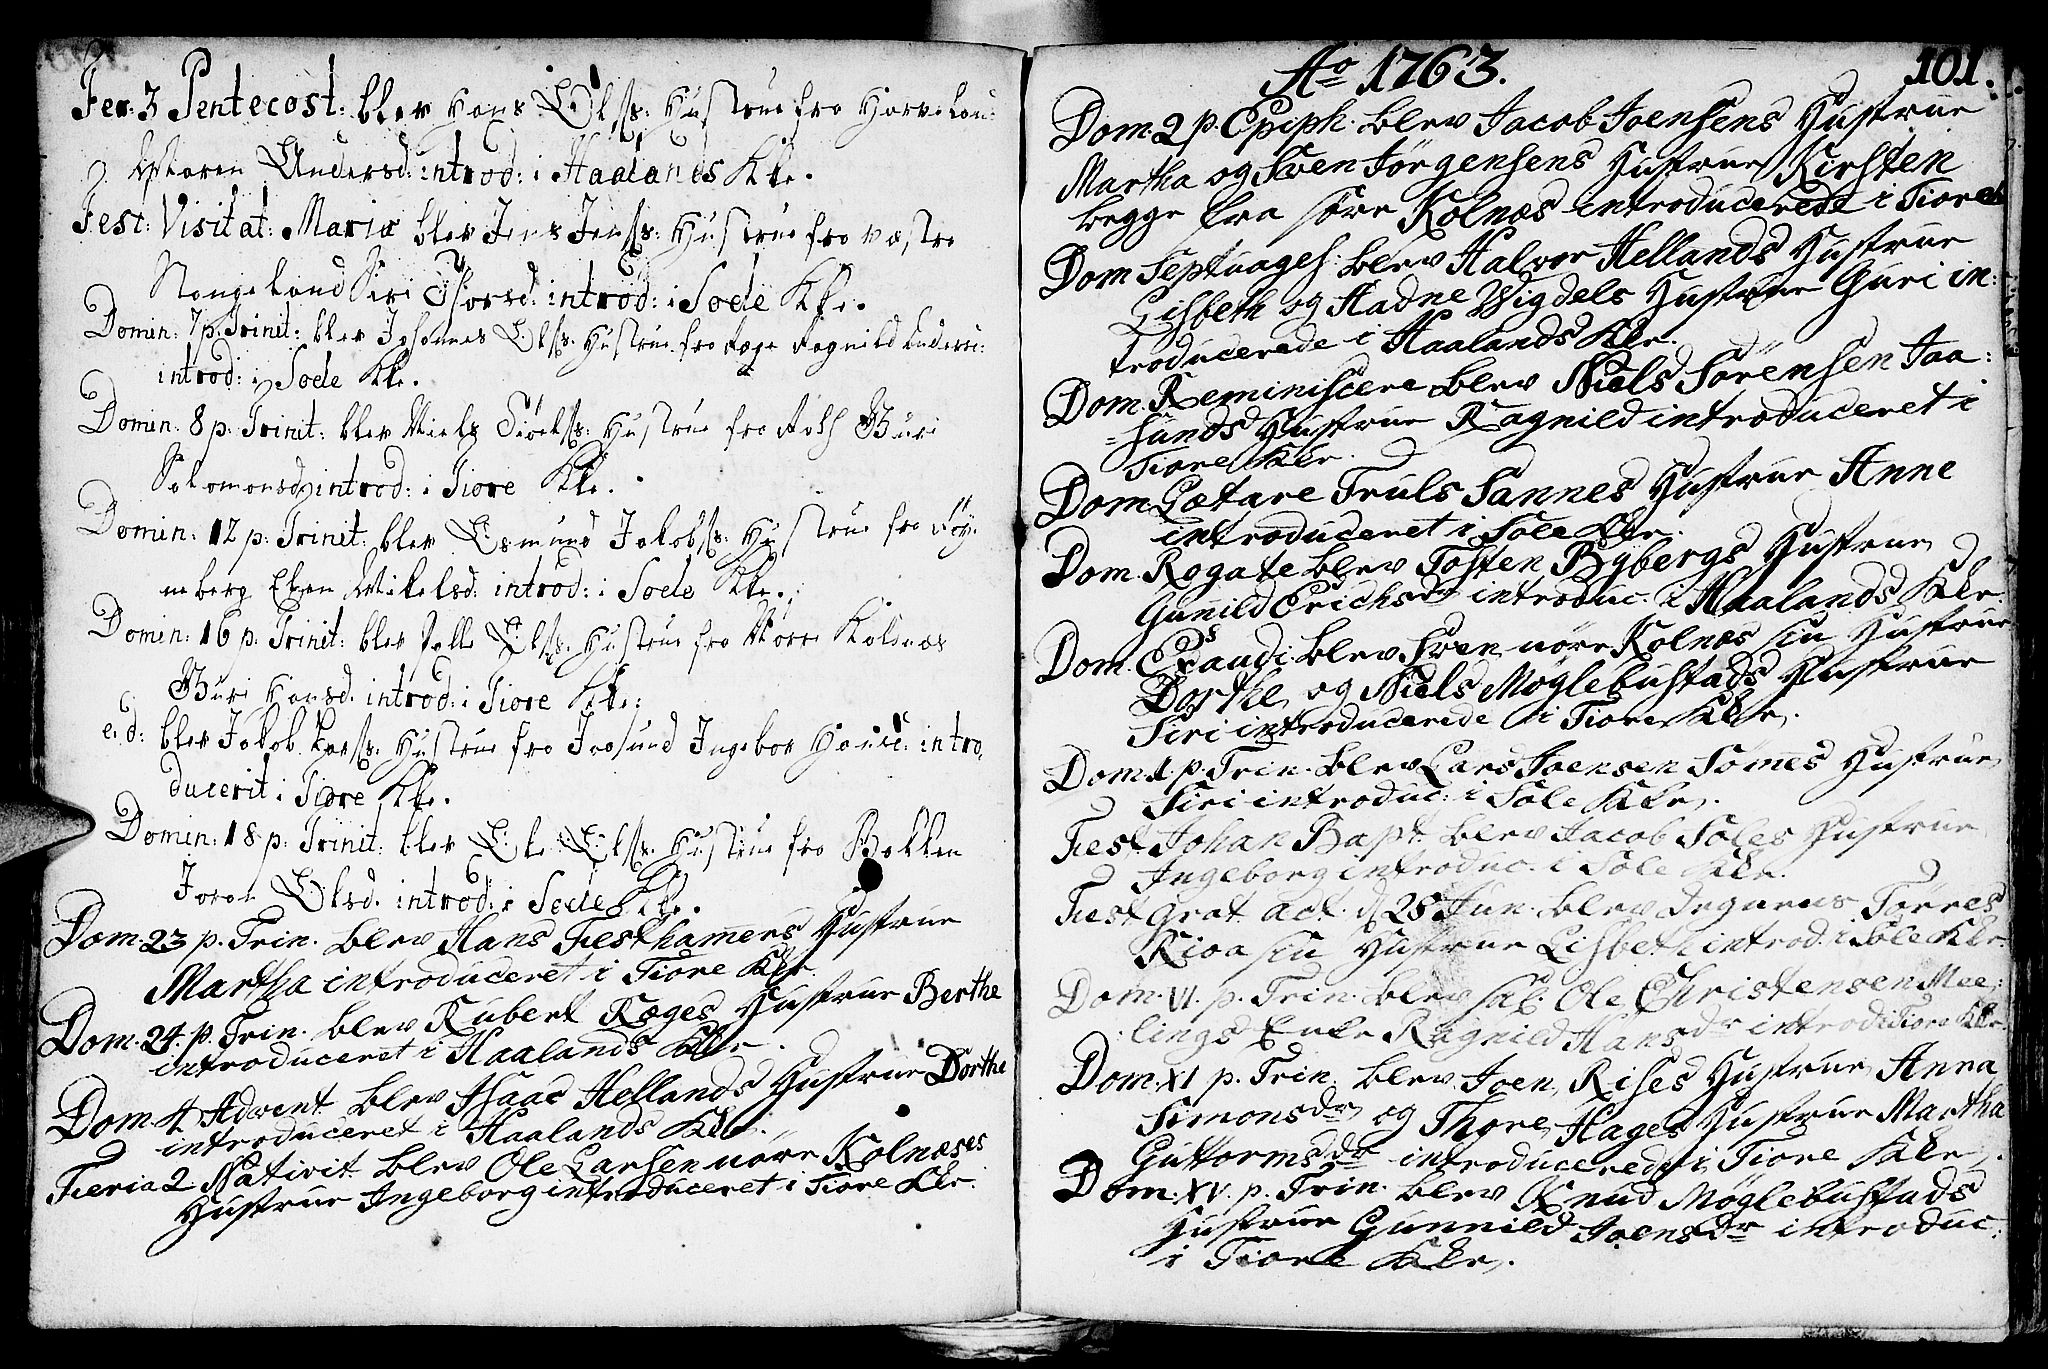 Fer: 3 Pentecost: blev Hans Olss: Hustrue fra Harvelan:
Maren Andersd: introd: i Haalands Kke.
Fest: Visitat: Mariæ blev Jens Jenss: Hustrue fra væstre
Stangeland Siri Thorsd: introd: i Soele Kke.
Domin: 7 p. Trinit: blev Johannes Olss: Hustrue fra Ræge Ragnild Anders:
introd: i Soele Kke.
Domin: 8 p: Trinit: blev Niels Hustrue fra Guri
Solomonsd introd: i Tiore Kke.
Domin: 12 p: Trinit: blev Osmund Jakobss: Hustrue fra Røy-
neberg Mikelsd: introd: i Soele Kke.
Domin: 16 p: Trinit: blev Olss: Hustrue fra Nørre Kolnæs
Guri Hansd. introd: i Tiore Kke:
e. d: blev Jakob Larss: Hustrue fra Jaasund Ingebor intro-
ducerit i Tiore Kke.
Domin: 18 p: Trinit: blev Ole Olss: Hustrue fra Bakken
Joren Olsd. introd: i Soele Kke.
Dom. 23 p. Trin. blev Hans Fiesthamers Hustrue
Martha introduceret i Tiore Kkr.
Dom. 24. p. Trin. blev Rubert Ræges Hustrue Berthe
introduceret i Haalands Kkr.
Dom. 4 Advent blev Isaac Hellands Hustrue Dorthe
introduceret i Haalands Kkr.
Fieria 2 Nativit blev Ole Larsen nöre Kolnæses
Hustrue Ingeborg introduceret i Tiore Kkr.
Ao 1763.
101.
Dom. 2 p. Epiph. blev Jacob Joensens Hustrue
Martha og Sven Jörgensens Hustrue Kirsten
begge fra söre Kolnæs introducerede i Tiore
Dom Septuages: blev Halvor Hellands Hustrue
Lisbeth og Aadne Wigdels Hustrue Guri in:
troducerede i Haalands Kkr.
Dom. Reminiscere blev Niels Sörensen Jaa:
sunds Hustrue Ragnild introduceret i
Tiore Kkr.
Dom. Lætare Truls Sannes Hustrue Anne
introduceret i Sole Kkr.
Dom. Rogate blev Tosten Bybergs Hustrue
Gunild Erichsdr introduc. i Haalands Kkr.
Dom. Exaudi blev Sven nöre Kolnæs sin Hustrue
Dorthe og Niels Möglebustads Hustrue
Siri introducerede i Tiore Kkr.
Dom. 1. p. Trin. blev Lars Joensen Sömes Hustrue
Siri introduc: i Sole Kkr.
Fiest. Johan Bapt. blev Jacob Soles Hustrue
Ingeborg introduc. i Sole Kkr.
Fiest Grat. act. d. 28 Jun. blev Törres
Kioa sin Hustrue Lisbeth introd. i Sole Kkr.
Dom. VI. p. Trin. blev sal. Ole Christensen Mee:
lings Enke Ragnild Hansdr introdu Tiore Kkr.
Dom. XI p. Trin. blev Joen Rises Hustrue Anna
Simonsdr og Thore Hages Hustrue Martha
Guttormsdr introducerede i Tiore Kkr.
Dom. XV. p. Trin. blev Knud Möglebustads
Hustrue Gunnild Joensdr introduc:
i Tiore Kkr.